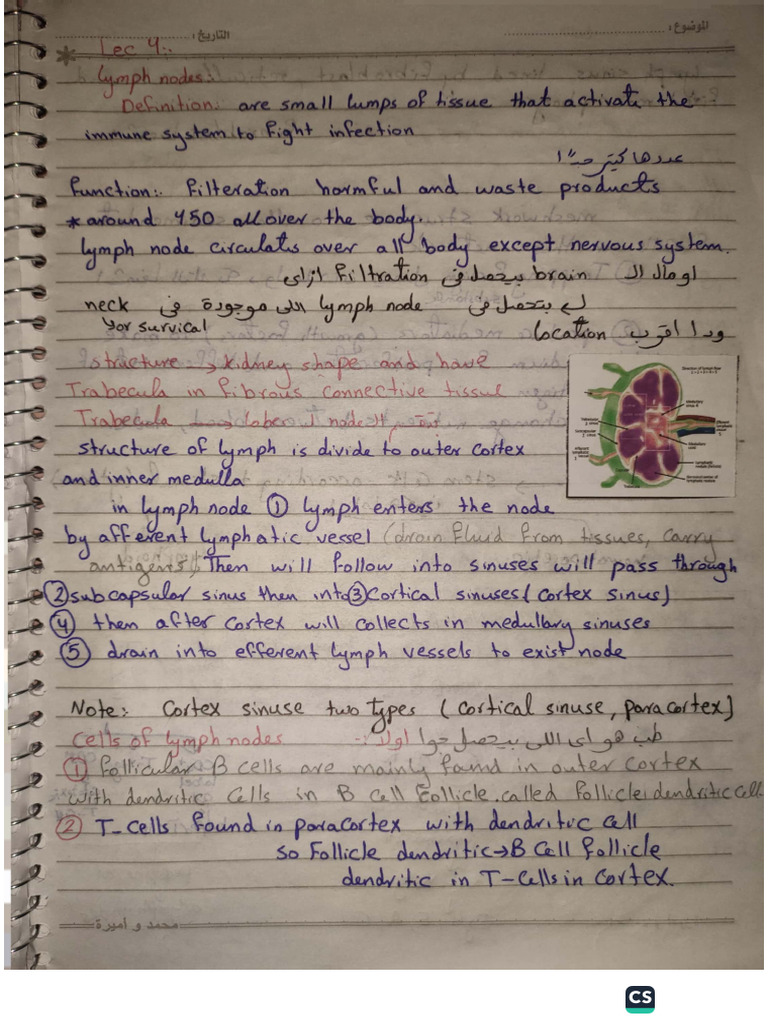 الموضوع: التاريخ:
Lec 4:.
* Lymph nodes:.
Definition: are small lumps of tissue that activate the
immune system to fight infection
عددها كتير جدًا
Function:. Filteration harmful and waste products
* around 450 all over the body.
lymph node circulats over all body except nervous system.
اومال ال brain بيحصل في filtration ازاي
لـ بتحصل في lymph node اللى موجودة فى neck
ودا اقرب location
structure → kidney shape and have
Trabecula in fibrous connective tissue
Trabecula ال node
structure of lymph is divide to outer cortex
and inner medulla
in lymph node ① lymph enters the node
by afferent lymphatic vessel (drain fluid from tissues, carry
antigens), Then will follow into sinuses will pass through
② subcapsular sinus then into ③ Cortical sinuses (cortex sinus)
④ then after cortex will collects in medullary sinuses
⑤ drain into efferent lymph vessels to exist node
Direction of lymph flow
Medullary
Medullary
Note:. Cortex sinuse two types (cortical sinuse, paracortex)
Cells of lymph nodes طب هو اى اللى بيحصل جوا اولا:-
① follicular B cells are mainly found in outer cortex
with dendritic cells in B cell follicle. called follicle dendritic cell
② T-cells found in paracortex with dendritic cell
so Follicle dendritic → B cell follicle
dendritic in T-cells in cortex.
محمد و اميرة
CS